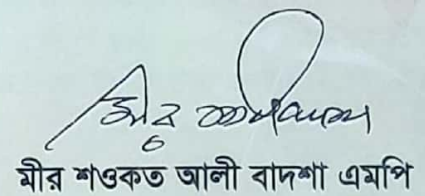 মীর শওকত আলী বাদশা এমপি